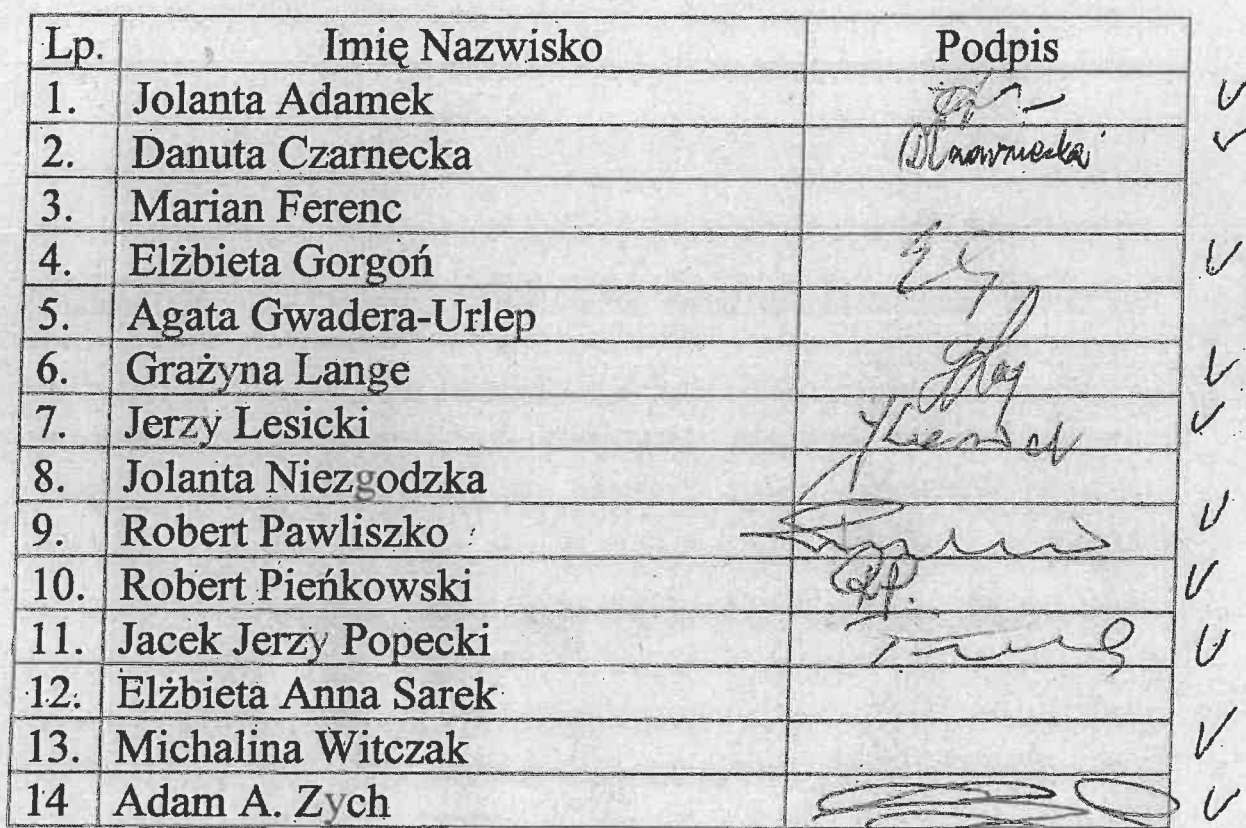 Lp. Imię Nazwisko Podpis
1. Jolanta Adamek
2. Danuta Czarnecka DCzarnecka
3. Marian Ferenc
4. Elżbieta Gorgoń EG
5. Agata Gwadera-Urlep
6. Grażyna Lange
7. Jerzy Lesicki
8. Jolanta Niezgodzka
9. Robert Pawliszko
10. Robert Pieńkowski RP.
11. Jacek Jerzy Popecki
12. Elżbieta Anna Sarek
13. Michalina Witczak
14 Adam A. Zych